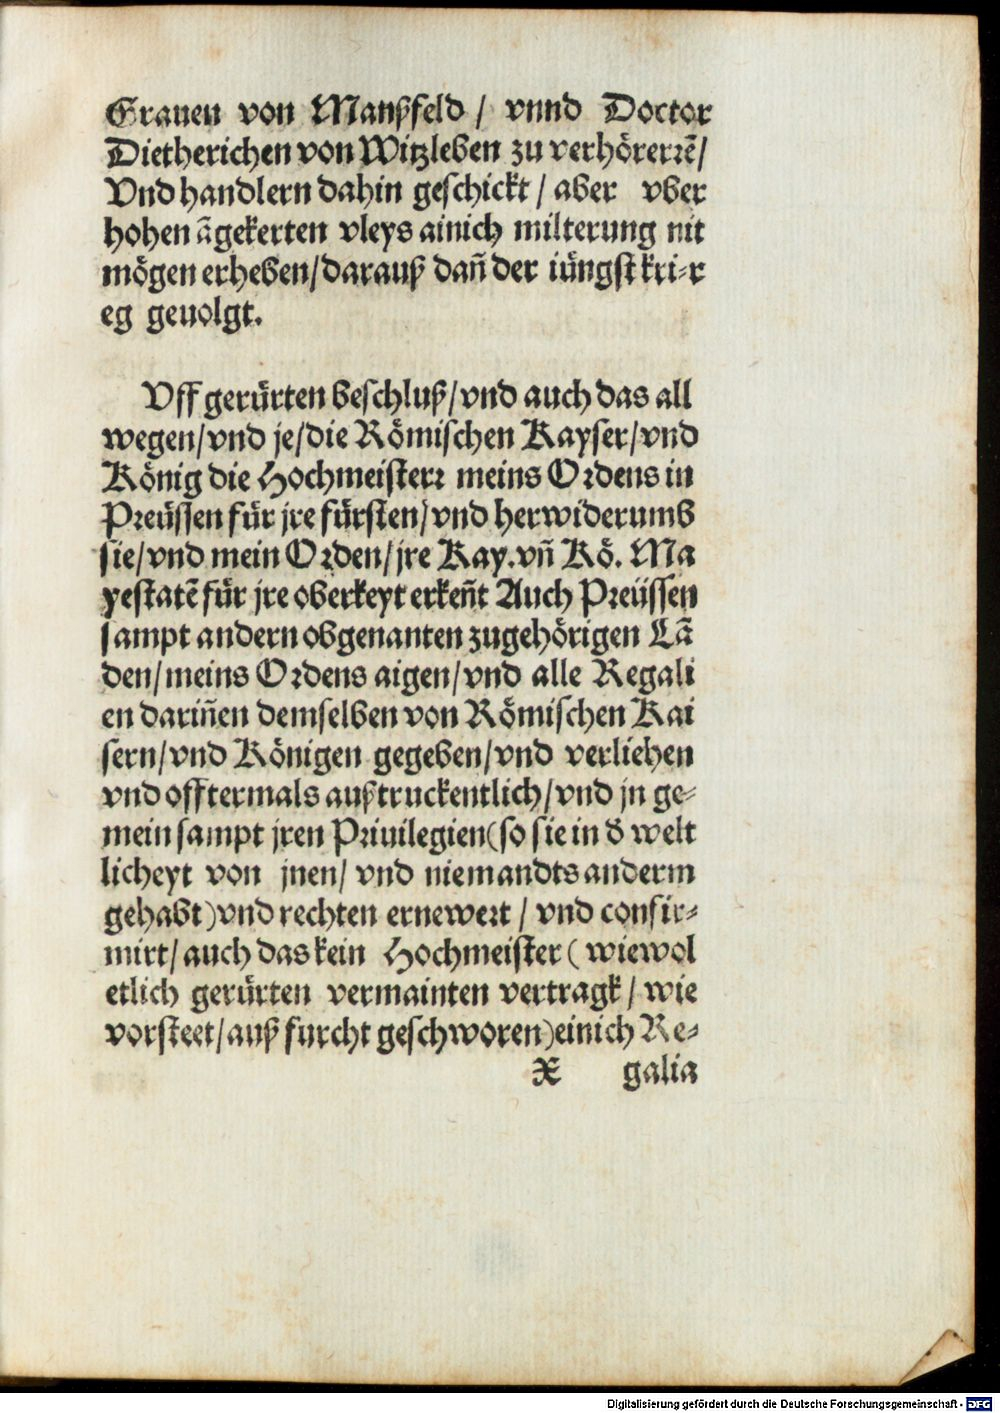 Grauen von Manßfeld / vnnd Doctor
Dietherichen von Witzleben zu verhörerrẽ/
Vnd handlern dahin geschickt / aber vber
hohen ãgekerten vleys ainich milterung nit
mögen erheben/darauß dañ der iüngst kri-r
eg geuolgt.
Vff gerürten beschluß/vnd auch das all
wegen/vnd je/die Römischen Kayser/vnd
König die Hochmeisterr meins Ordens in
Preüssen für jre fürsten/vnd herwiderumb
sie/vnd mein Orden/jre Kay.vñ Kö. Ma
yestatẽ für jre oberkeyt erkeñt Auch Preüssen
sampt andern obgenanten zugehörigen Lã
den/meins Ordens aigen/vnd alle Regali
en dariñen demselben von Römischen Kai
sern/vnd Königen gegeben/vnd verliehen
vnd offtermals außtruckentlich/vnd jn ge-
mein sampt jren Priuilegien(so sie in d̕ welt
licheyt von jnen/ vnd niemandts anderm
gehabt)vnd rechten ernewert / vnd confir-
mirt/auch das kein Hochmeister ( wiewol
etlich gerürten vermainten vertragk / wie
vorsteet/auß furcht geschworen)einich Re-
X galia
Digitalisierung gefördert durch die Deutsche Forschungsgemeinschaft - DFG